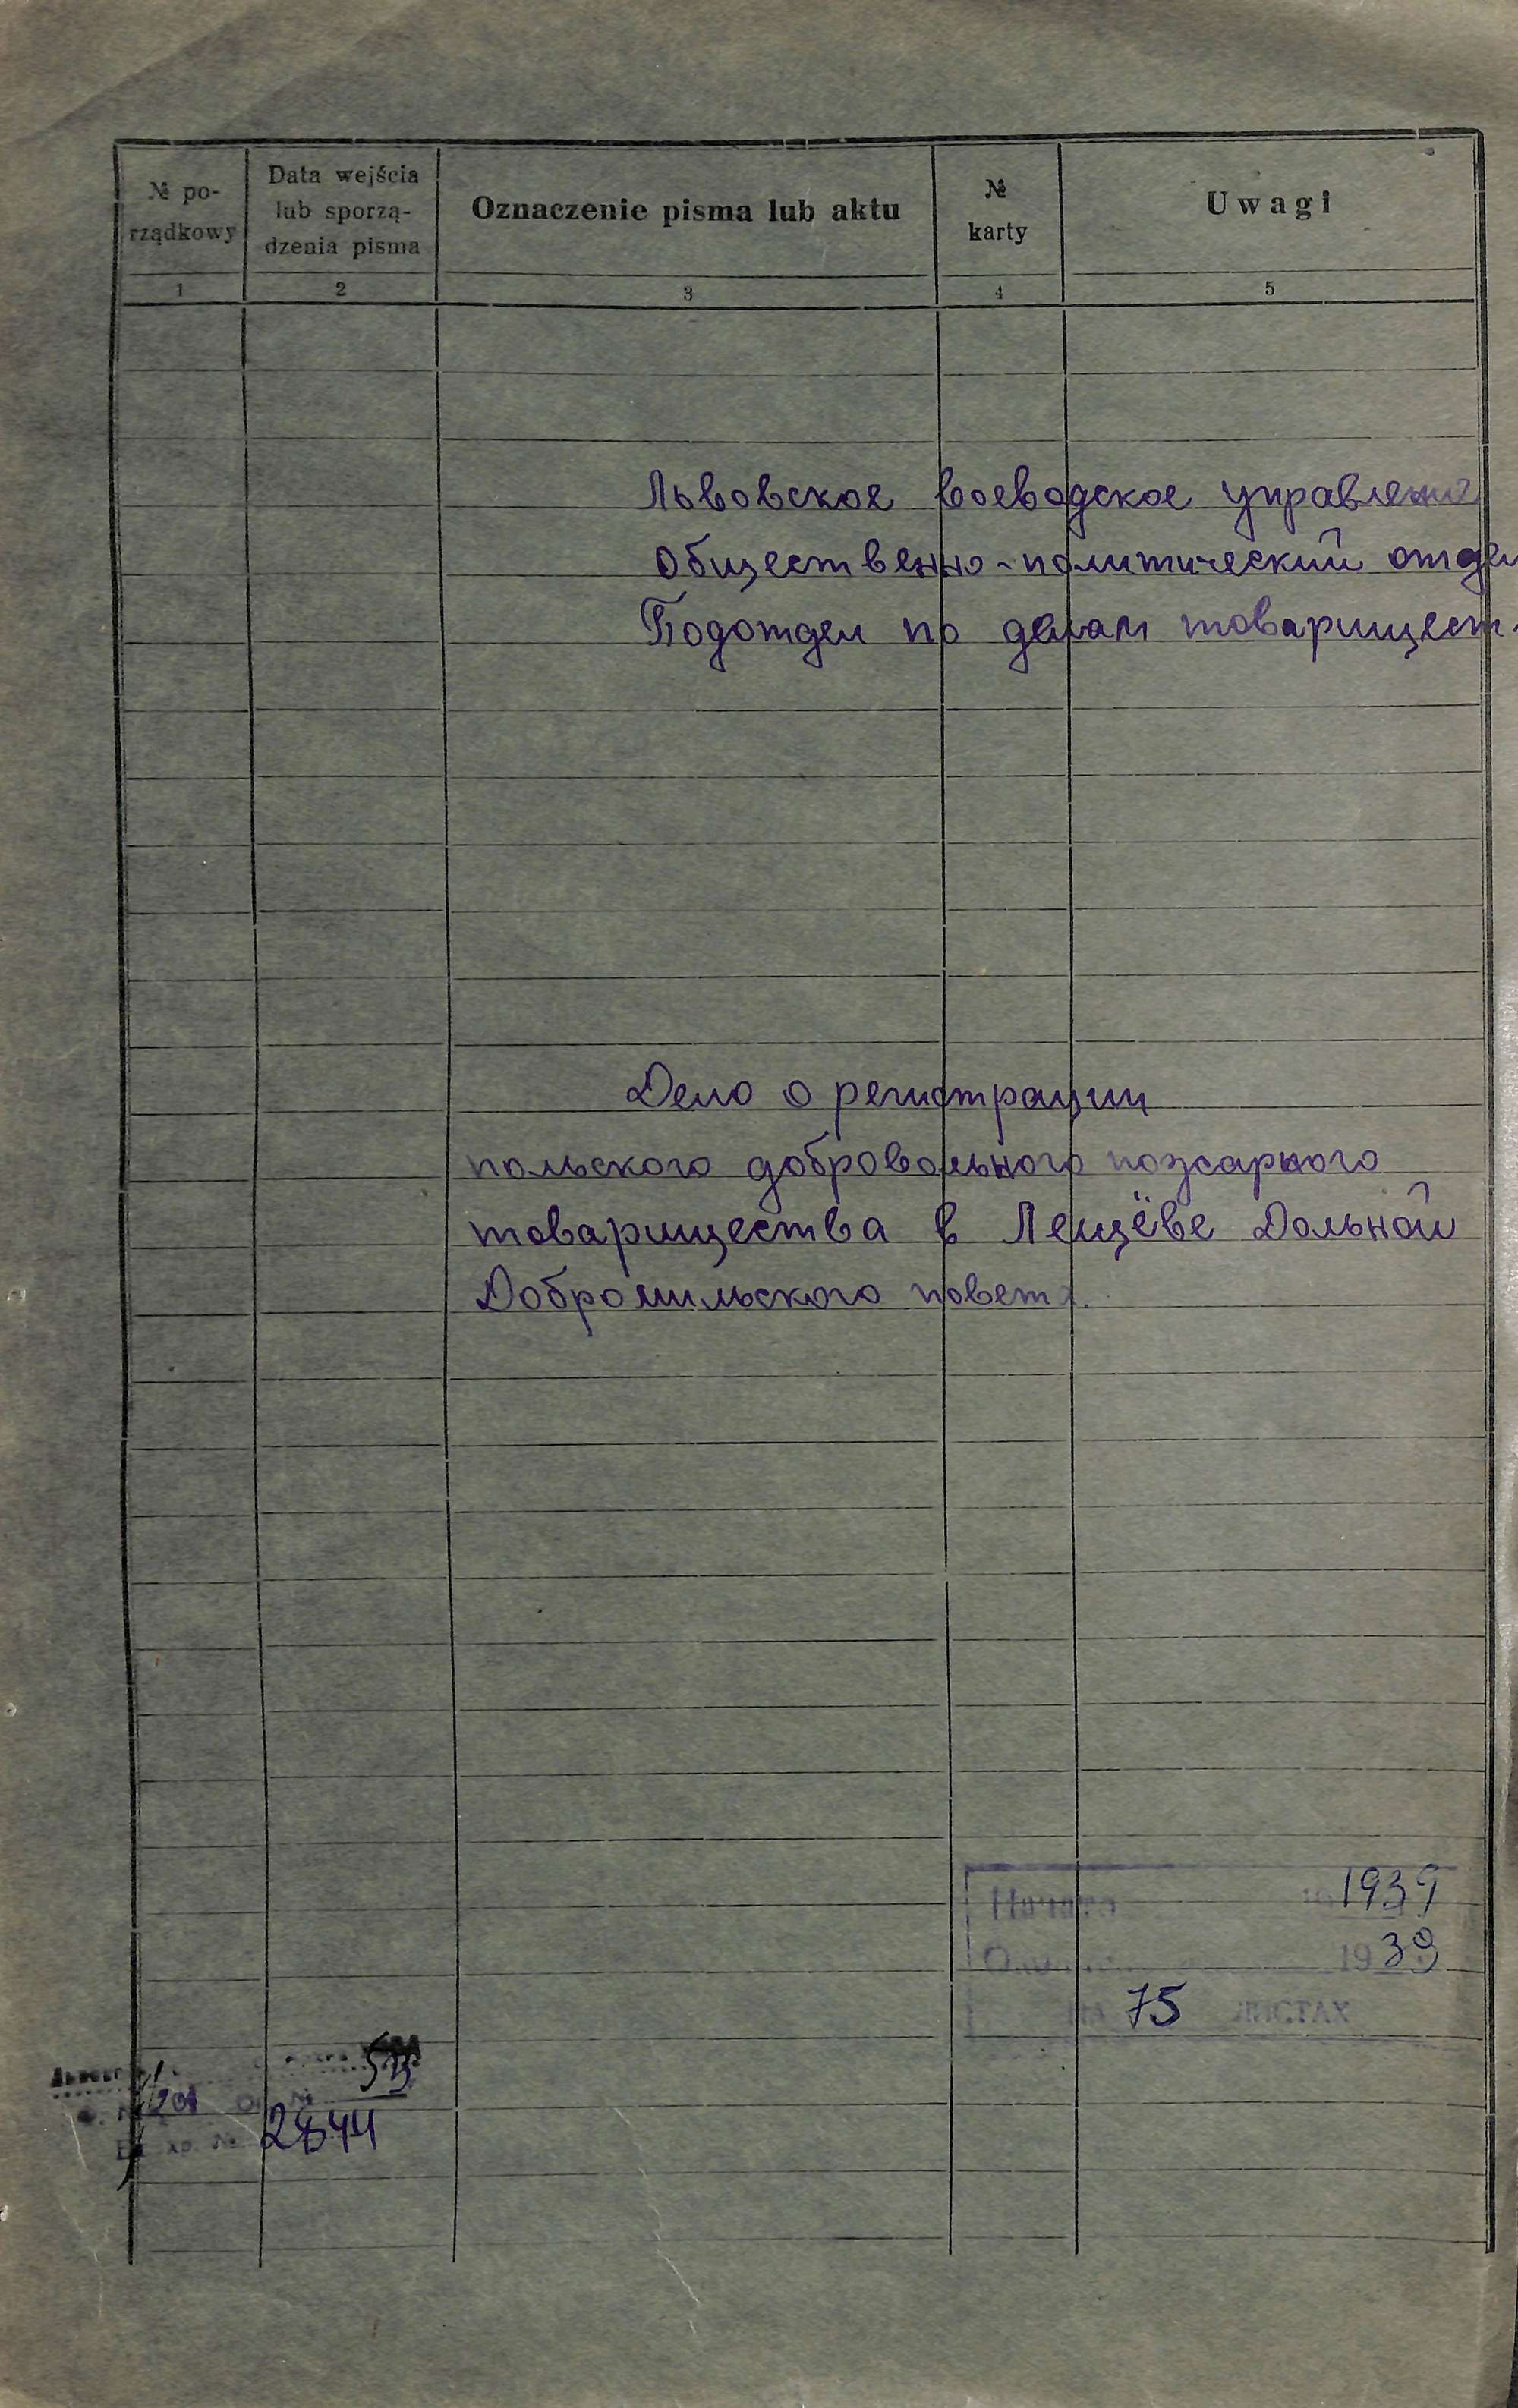 № po-
rządkowy
Data wejścia
lub sporzą-
dzenia pisma
Oznaczenie pisma lub aktu
№
karty
Uwagi
1 2 3 4 5
Львовское воеводское управление
Общественно-политический отдел
Подотдел по делам товарищест-
Дело о регистрации
польского добровольного пожарного
товарищества в Лещёве Дольной
Добромильского повета.
Начато 1939
19 39
НА 75 ЛИСТАХ
201
2844